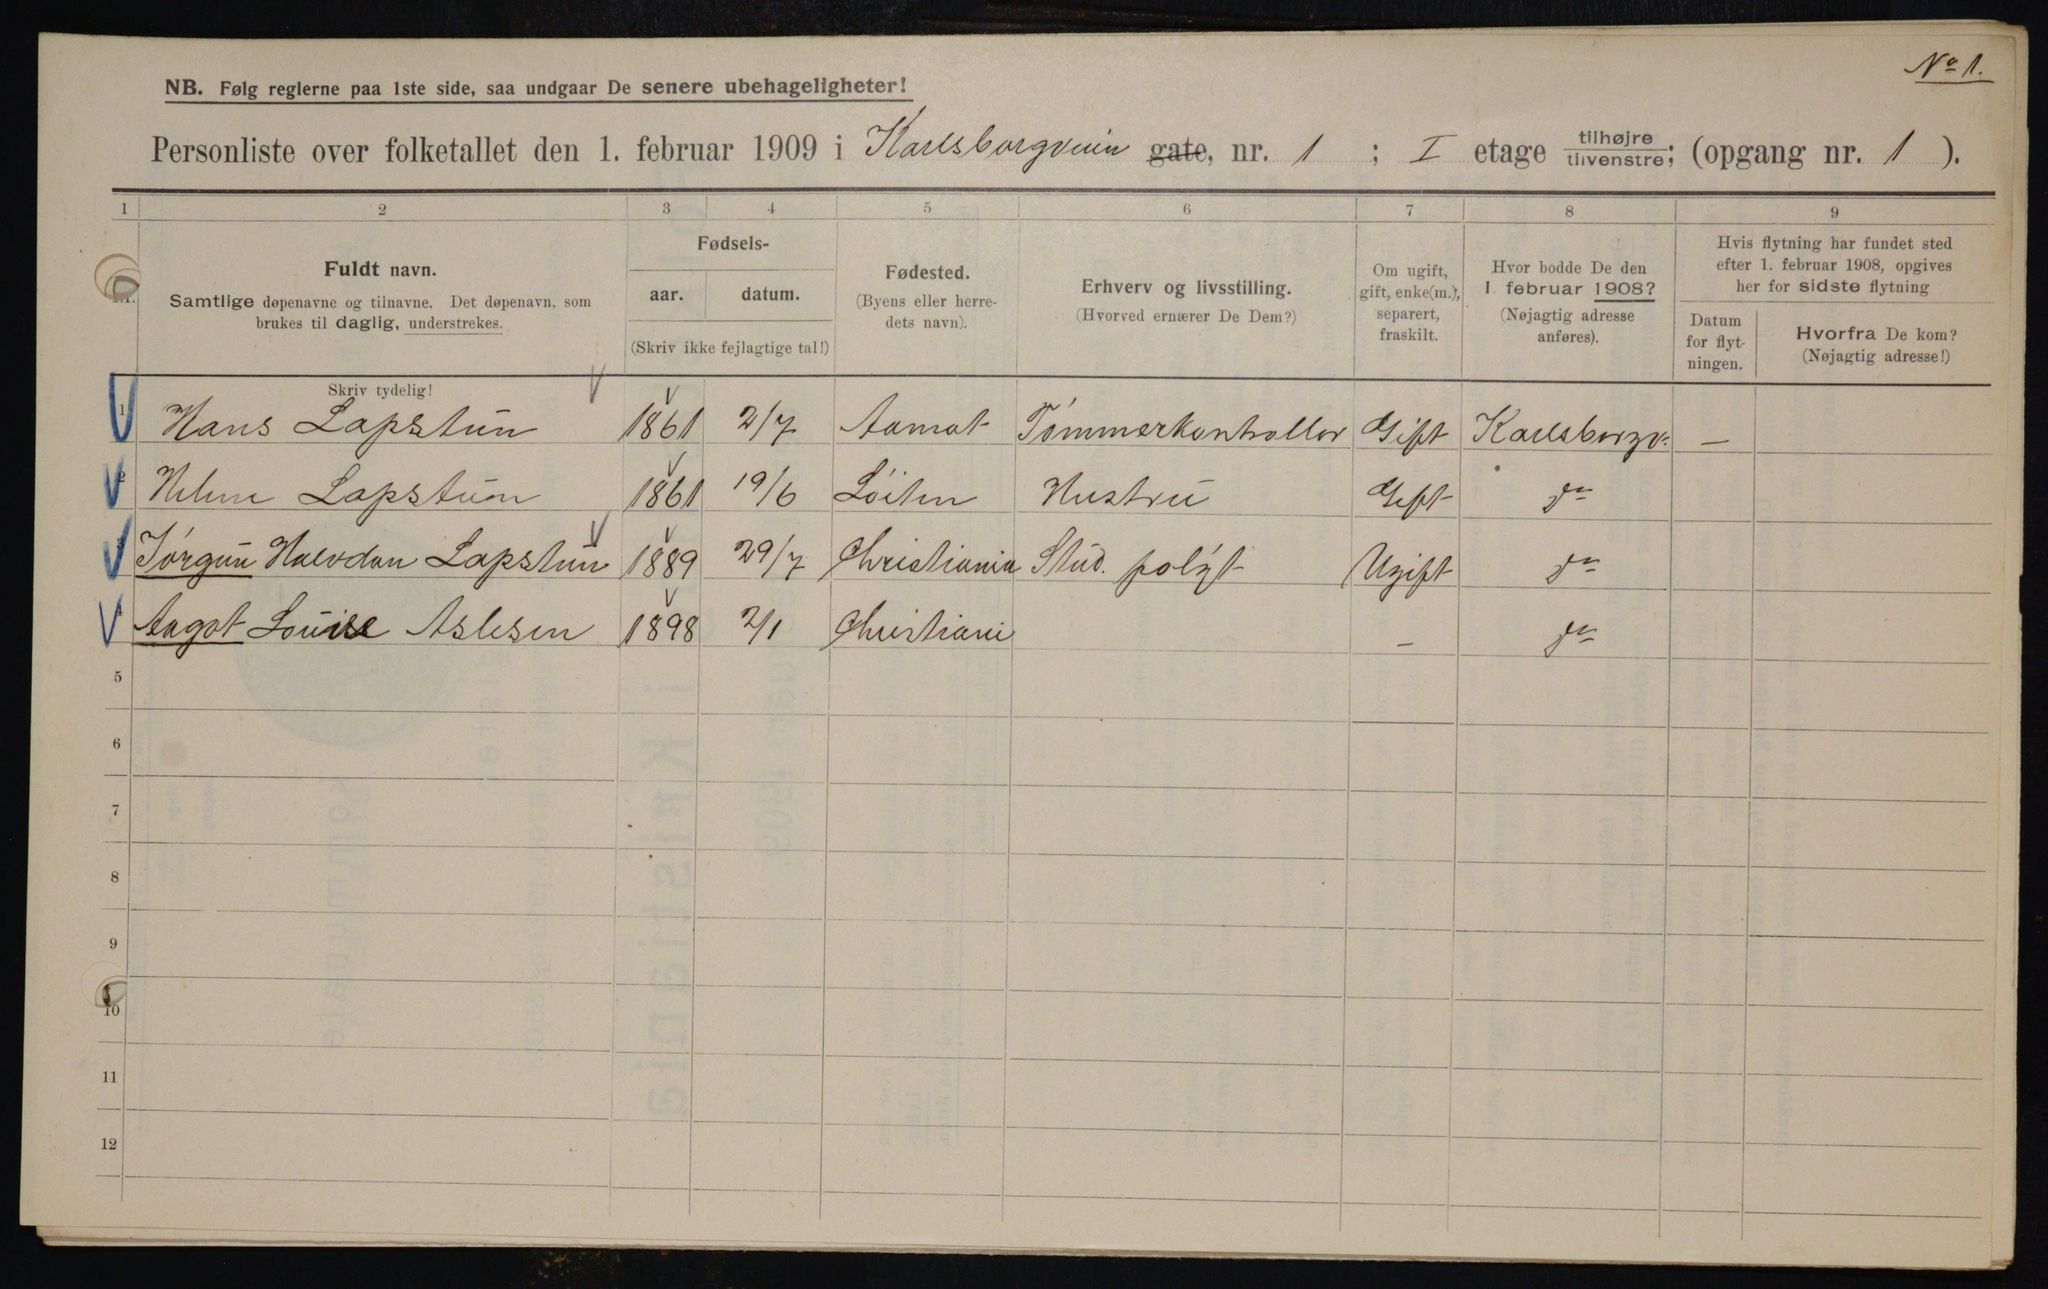 No 1.
NB. Følg reglerne paa 1ste side, saa undgaar De senere ubehageligheter!
Personliste over folketallet den 1. februar 1909 i Karlsborgveien gate, nr. 1 ; I etage tilhøjre/tilvenstre; (opgang nr. 1 ).
1 2 3 4 5 6 7 8 9
Nr.
Fuldt navn.
Samtlige døpenavne og tilnavne. Det døpenavn, som
brukes til daglig, understrekes.
Fødsels-
aar. datum.
(Skriv ikke fejlagtige tal!)
Fødested.
(Byens eller herre-
dets navn).
Erhverv og livsstilling.
(Hvorved ernærer De Dem?)
Om ugift,
gift, enke(m.),
separert,
fraskilt.
Hvor bodde De den
1. februar 1908?
(Nøjagtig adresse
anføres).
Hvis flytning har fundet sted
efter 1. februar 1908, opgives
her for sidste flytning
Datum
for flyt-
ningen.
Hvorfra De kom?
(Nøjagtig adresse!)
Skriv tydelig!
1 Hans Lapstun 1861 2/7 Aamot Tømmerkontrollør Gift Karlsborgv. —
2 Helene Lapstun 1861 19/6 Løiten Hustru Gift do
3 Jørgen Halvdan Lapstun 1889 29/7 Christiania Stud. polyt Ugift do
4 Aagot Louise Aslesen 1898 2/1 Christiani — do
5
6
7
8
9
10
11
12